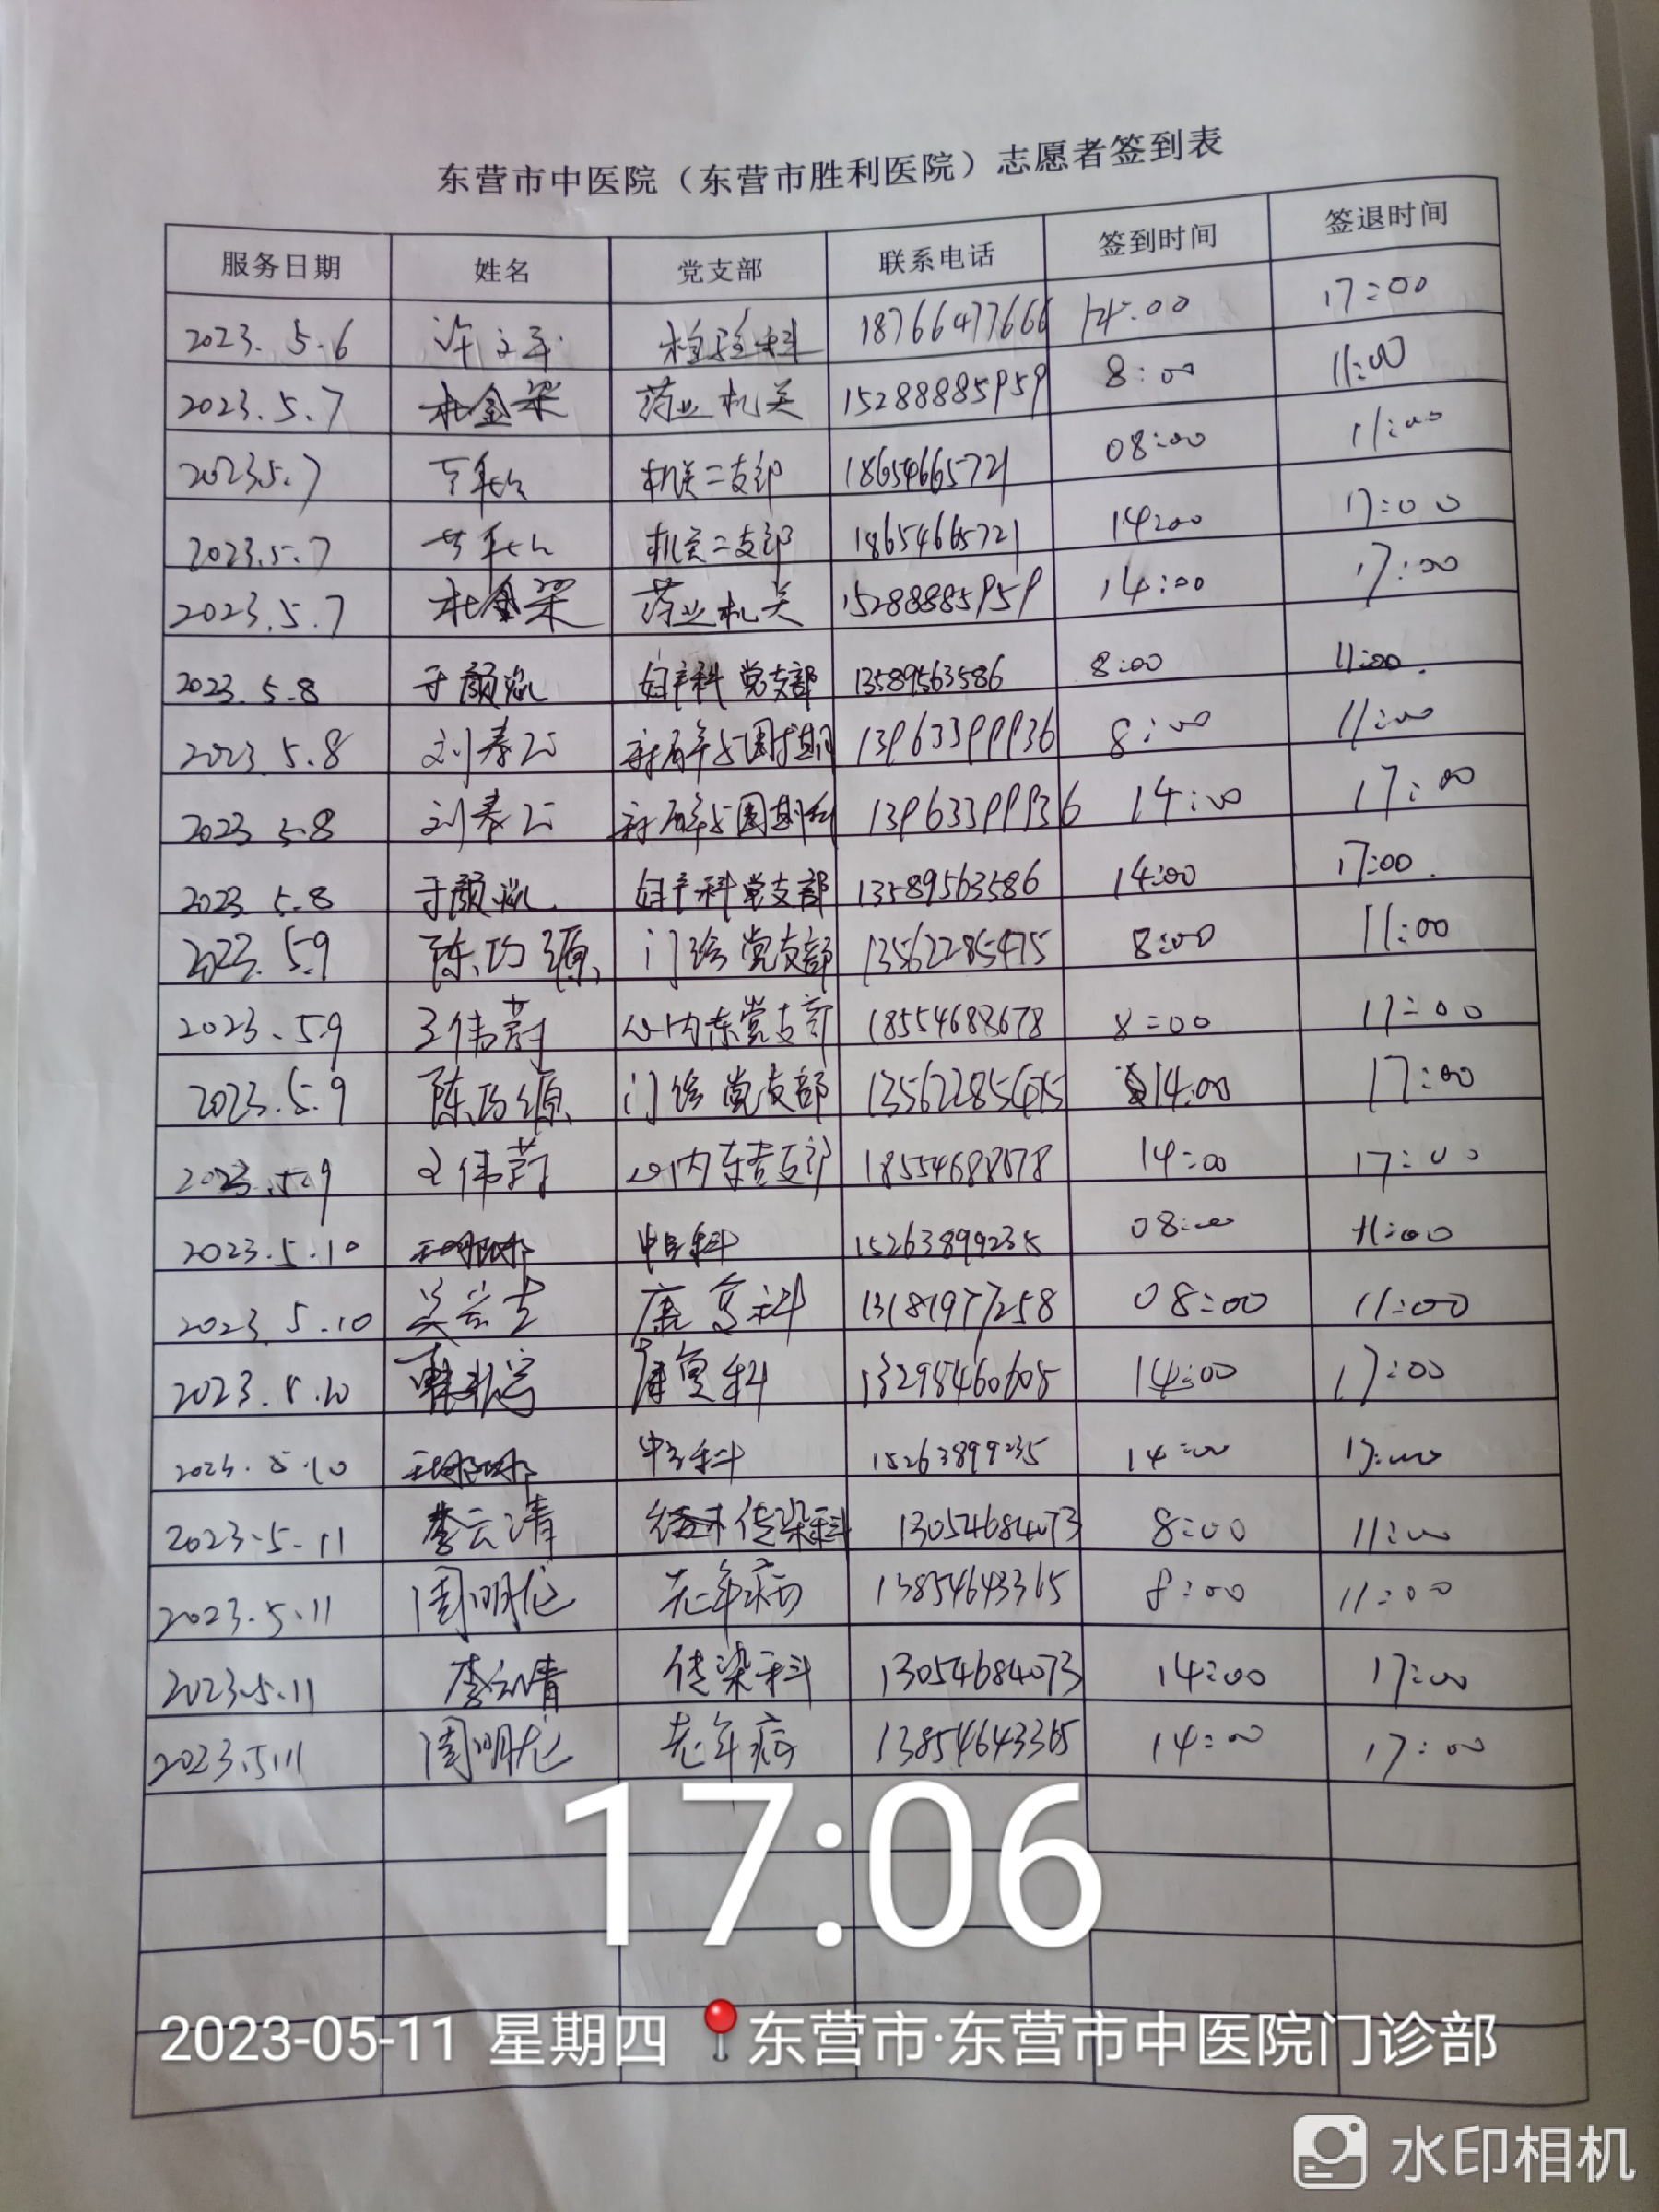 东营市中医院（东营市胜利医院）志愿者签到表
服务日期 姓名 党支部 联系电话 签到时间 签退时间
2023.5.6 许 检验科 18766477666 14:00 17:00
2023.5.7 杜金梁 药业机关 15288885959 8:00 11:00
2023.5.7 机关二支部 18654665721 08:00 11:00
2023.5.7 机关二支部 18654665721 14:00 17:00
2023.5.7 杜金梁 药业机关 15288885959 14:00 17:00
2023.5.8 于颜 妇产科党支部 13589563586 8:00 11:00
2023.5.8 刘春 13963399936 8:00 11:00
2023.5.8 刘春 13963399936 14:00 17:00
2023.5.8 于颜 妇产科党支部 13589563586 14:00 17:00
2023.5.9 陈巧源 门诊党支部 13562285475 8:00 11:00
2023.5.9 王伟蔚 心内东党支部 18554688678 8:00 17:00
2023.5.9 陈巧源 门诊党支部 14:00 17:00
2023.5.9 王伟蔚 心内东党支部 18554688678 14:00 17:00
2023.5.10 中医科 15263899235 08:00 11:00
2023.5.10 吴 康复科 13181977258 08:00 11:00
2023.5.10 韩 康复科 13295460605 14:00 17:00
2023.5.10 中医科 15263899235 14:00 17:00
2023.5.11 李云清 传染科 13054684073 8:00 11:00
2023.5.11 周明龙 老年病 13854643365 8:00 11:00
2023.5.11 李云清 传染科 13054684073 14:00 17:00
2023.5.11 周明龙 老年病 13854643365 14:00 17:00
17:06
2023-05-11 星期四 东营市·东营市中医院门诊部
水印相机